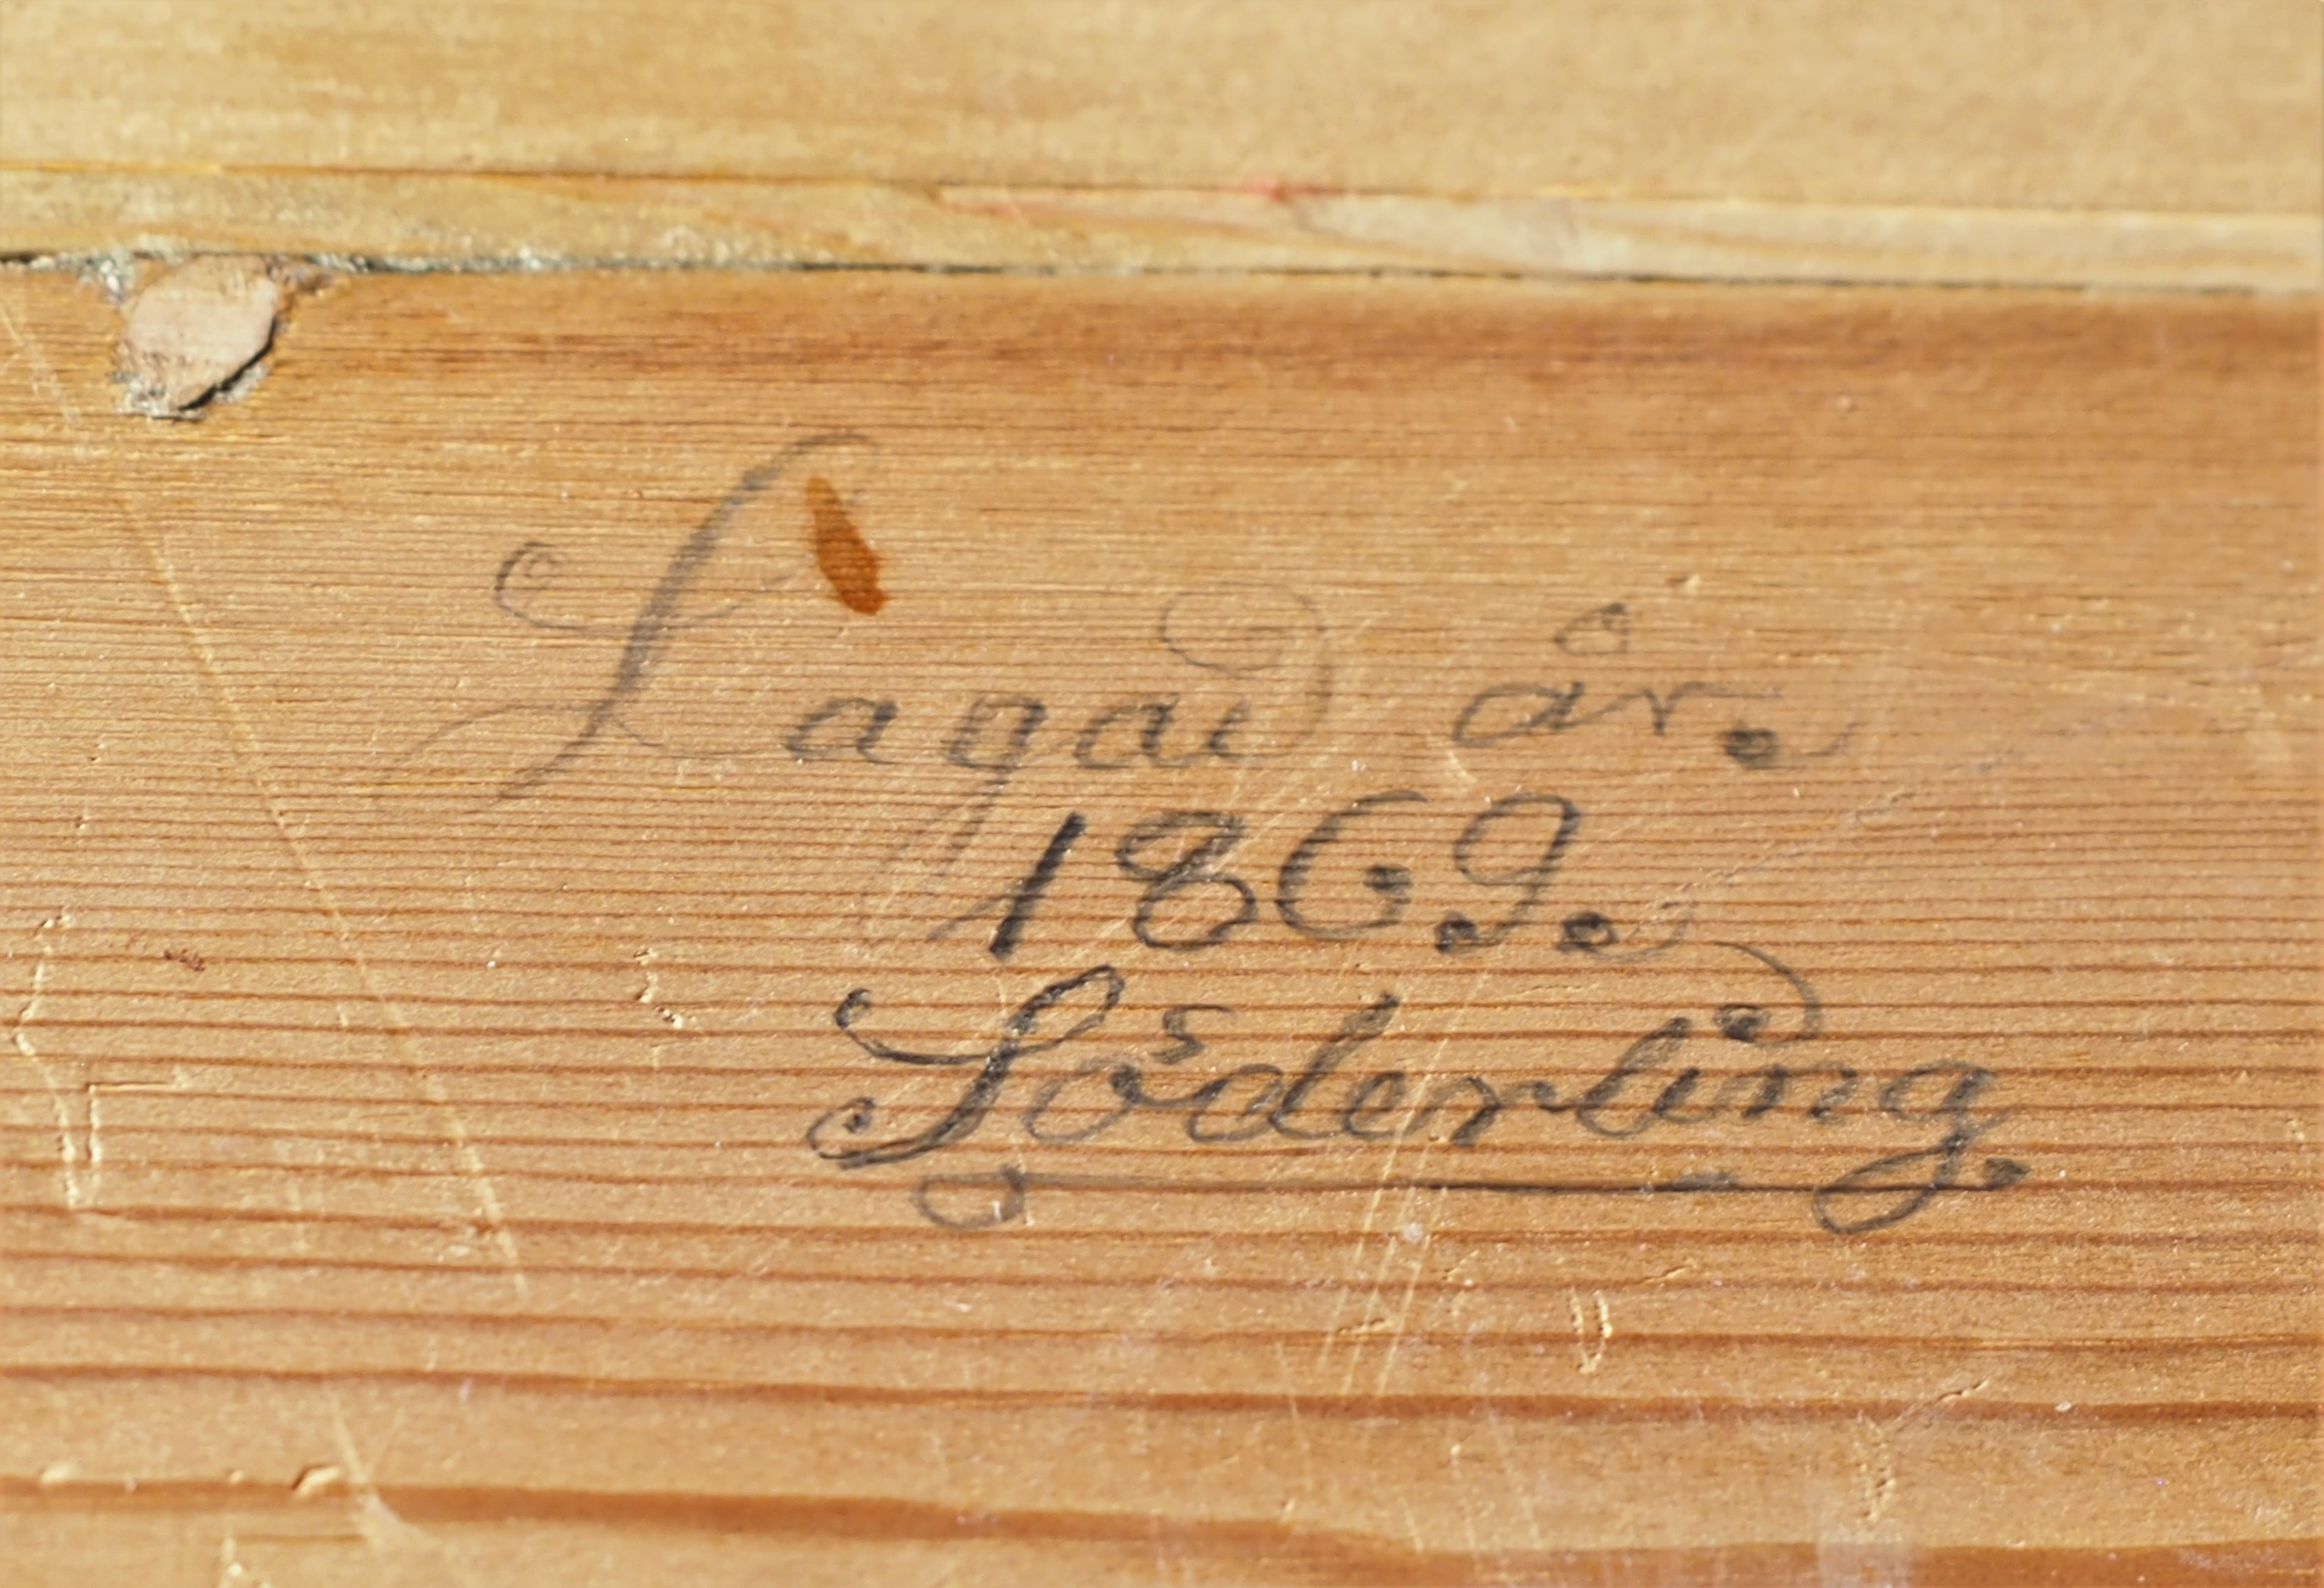 Lagad år.
1869.
Söderling